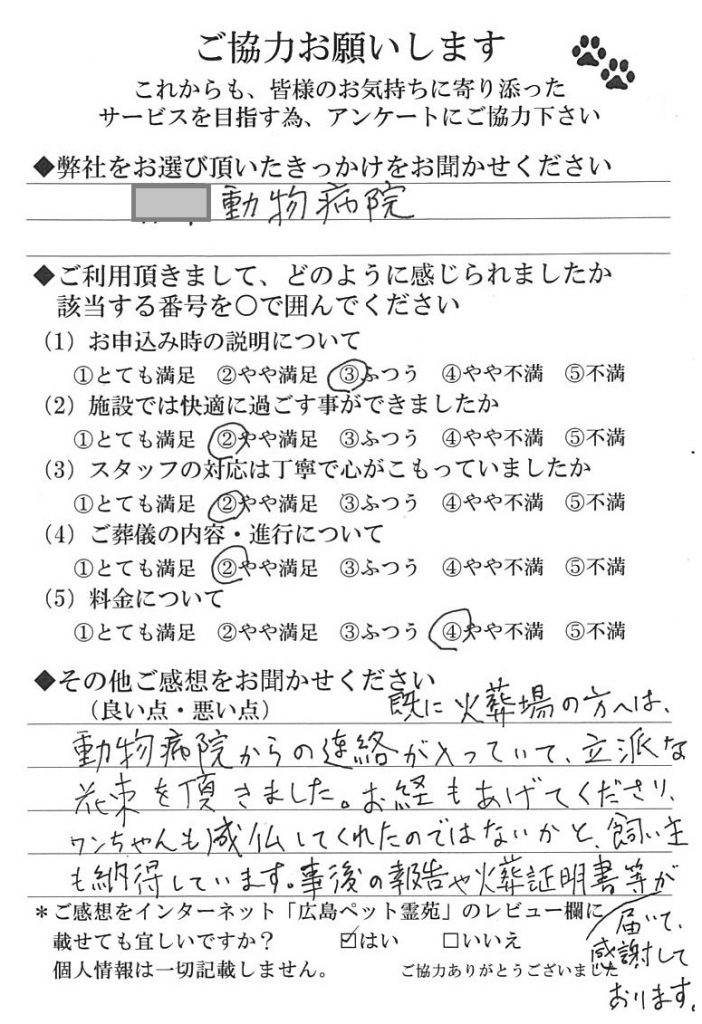 ご協力お願いします
これからも、皆様のお気持ちに寄り添った
サービスを目指す為、アンケートにご協力下さい
◆弊社をお選び頂いたきっかけをお聞かせください
動物病院
◆ご利用頂きまして、どのように感じられましたか
該当する番号を〇で囲んでください
(1) お申込み時の説明について
①とても満足 ②やや満足 ③ふつう ④やや不満 ⑤不満
(2) 施設では快適に過ごす事ができましたか
①とても満足 ②やや満足 ③ふつう ④やや不満 ⑤不満
(3) スタッフの対応は丁寧で心がこもっていましたか
①とても満足 ②やや満足 ③ふつう ④やや不満 ⑤不満
(4) ご葬儀の内容・進行について
①とても満足 ②やや満足 ③ふつう ④やや不満 ⑤不満
(5) 料金について
①とても満足 ②やや満足 ③ふつう ④やや不満 ⑤不満
◆その他ご感想をお聞かせください
(良い点・悪い点)
既に火葬場の方へは、
動物病院からの連絡が入っていて、立派な
花束を頂きました。お経もあげてくださり、
ワンちゃんも成仏してくれたのではないかと、飼い主
も納得しています。事後の報告や火葬証明書等が
届いて、
感謝して
おります。
*ご感想をインターネット「広島ペット霊苑」のレビュー欄に
載せても宜しいですか? ☑はい □いいえ
個人情報は一切記載しません。 ご協力ありがとうございました